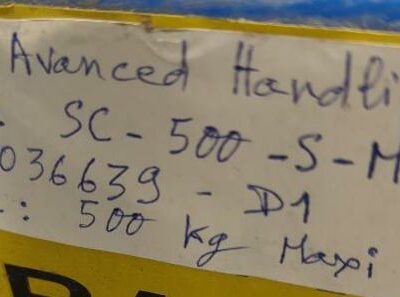 Avanced Handli
. SC - 500 - S - M
036639 - D1
.: 500 kg Maxi